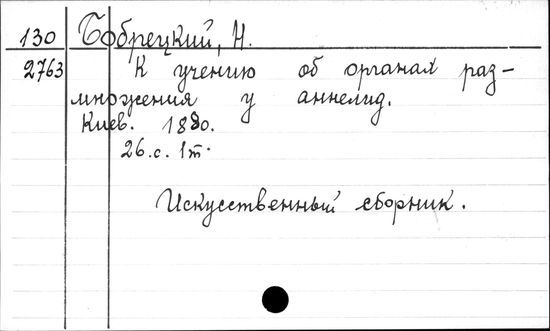 130 Бобрецкий, Н.
2763 К учению об органах раз-
множения у аннелид.
Киев. 1880.
26.с. 1т.
Искусственный сборник.